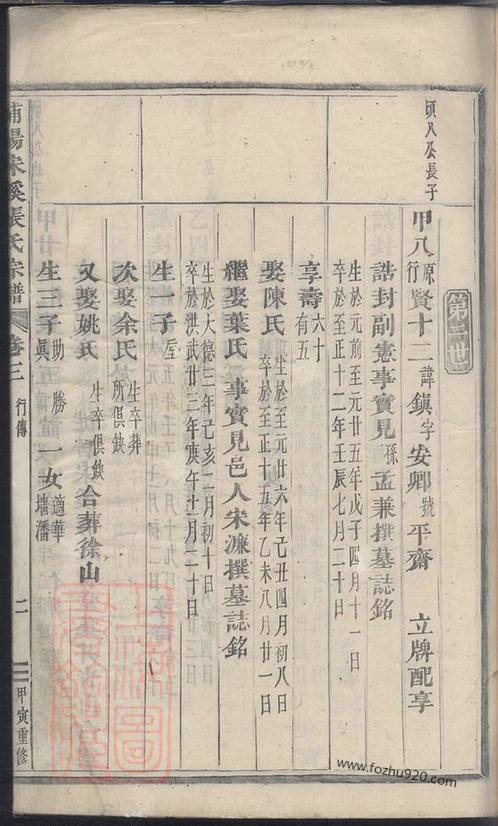 第二世
頃八公長子
甲八原行賢十二諱鎮字安卿號平齋 立牌配享
誥封副憲事實見孫孟兼撰墓誌銘
生於元前至元廿五年戊子四月十一日
卒於至正十二年壬辰七月二十日
享壽六十有五
娶陳氏生於至元廿六年己丑四月初八日
卒於至正十五年乙未八月廿一日
繼娶葉氏事實見邑人宋濂撰墓誌銘
生於大德三年己亥二月初十日
卒於洪武廿三年庚午十二月二十日
生一子
次娶余氏生卒葬所俱缺
又娶姚氏生卒俱缺合葬徐山
生三子助勝真一女適華墻潘
浦陽朱溪張氏宗譜 卷三 行傳 二 甲寅重修
www.fozhu920.com